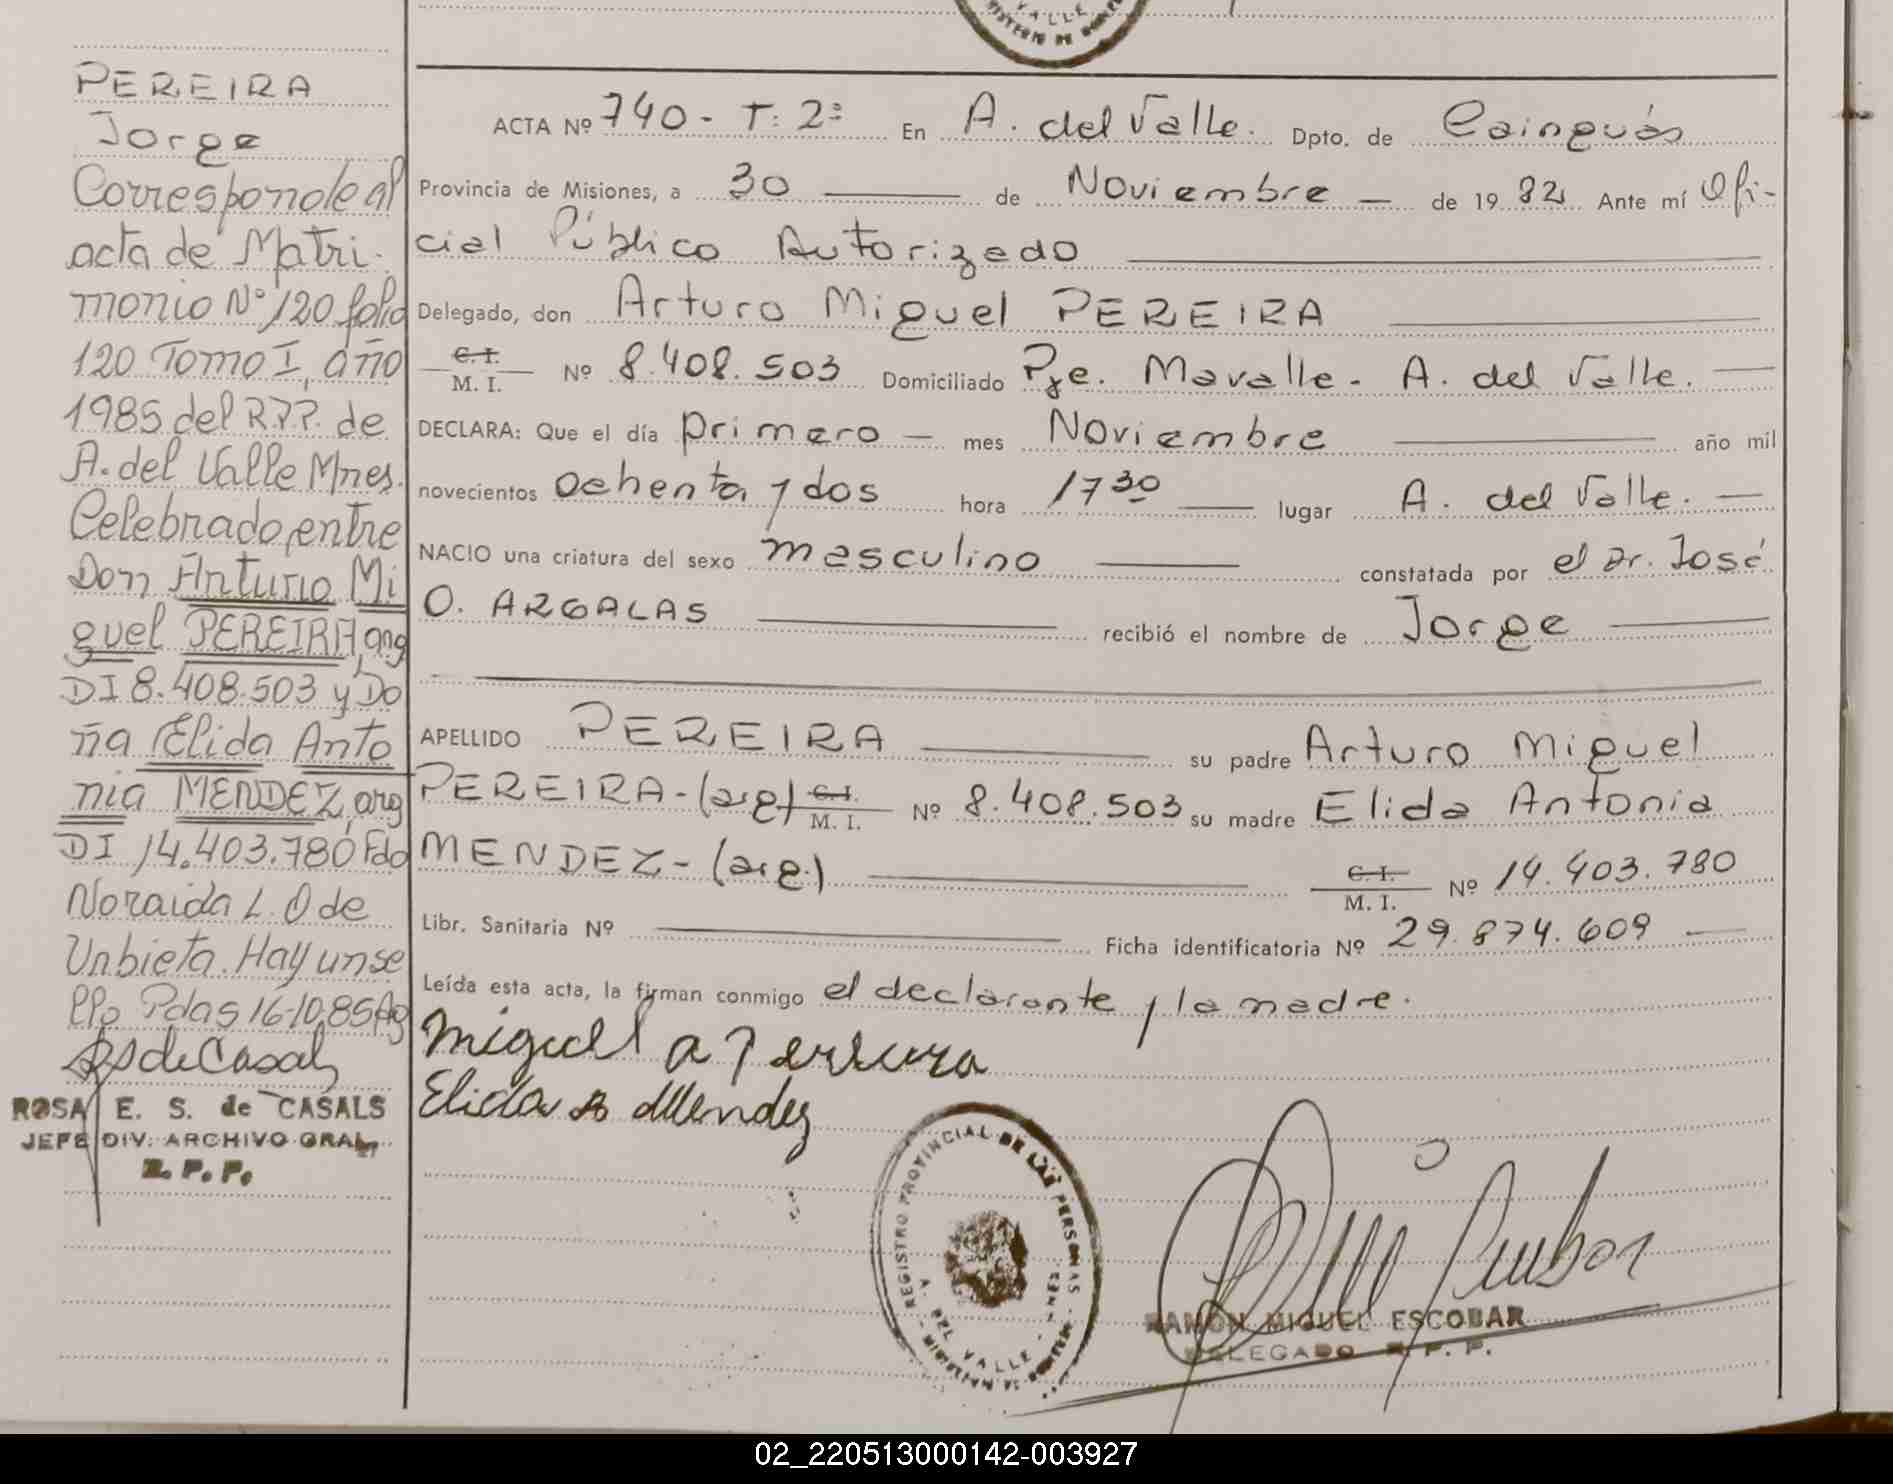 PEREIRA
Jorge
Corresponde al
acta de Matri-
monio Nº 120 folio
120 Tomo I, año
1985 del R.P.P. de
A. del Valle Mnes.
Celebrado entre
Don Arturo Mi
guel PEREIRA, arg
DI 8.408.503 y Do
ña Elida Anto
nia MENDEZ, arg
DI 14.403.780 Fdo
Noraida L. O de
Urbieta. Hay un se
llo Pdas 16-10-85
S de Casals
ROSA E. S. de CASALS
JEFE DIV. ARCHIVO GRAL.
R. P. P.
VALLE
ACTA Nº 740 - T: 2º En A. del Valle. Dpto. de Cainguás
Provincia de Misiones, a 30 de Noviembre de 19 82 Ante mí Ofi-
cial Público Autorizado
Delegado, don Arturo Miguel PEREIRA
C. I. M. I. Nº 8.408.503 Domiciliado Pje. Mavalle - A. del Valle.
DECLARA: Que el día primero mes Noviembre año mil
novecientos ochenta y dos hora 17 30 lugar A. del Valle.
NACIO una criatura del sexo masculino constatada por el Dr. José
O. ARGALAS recibió el nombre de Jorge
APELLIDO PEREIRA su padre Arturo Miguel
PEREIRA - (arg) C. I. M. I. Nº 8.408.503 su madre Elida Antonia
MENDEZ - (arg.) C. I. M. I. Nº 14.403.780
Libr. Sanitaria Nº Ficha identificatoria Nº 29.874.609
Leída esta acta, la firman conmigo el declarante y la madre.
Miguel a Perreura
Elida A Mendez
REGISTRO PROVINCIAL DE LAS PERSONAS
A. DEL VALLE
RAMON MIGUEL ESCOBAR
DELEGADO R. P. P.
02_220513000142-003927